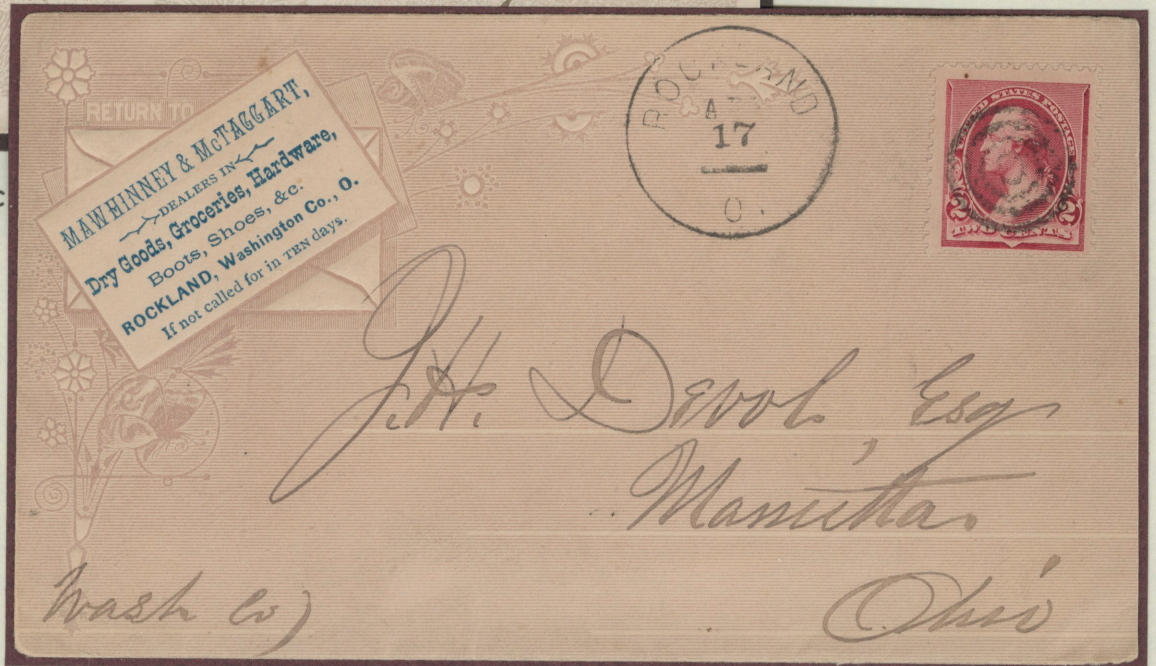 RETURN TO
MAWHINNEY & McTAGGART,
DEALERS IN
Dry Goods, Groceries, Hardware,
Boots, Shoes, &c.
ROCKLAND, Washington Co., O.
If not called for in TEN days.
ROCKLAND
17
O.
UNITED STATES POSTAGE
2 2
TWO CENTS
J. H. Devol, Esq
Marietta
Ohio
Wash Co)